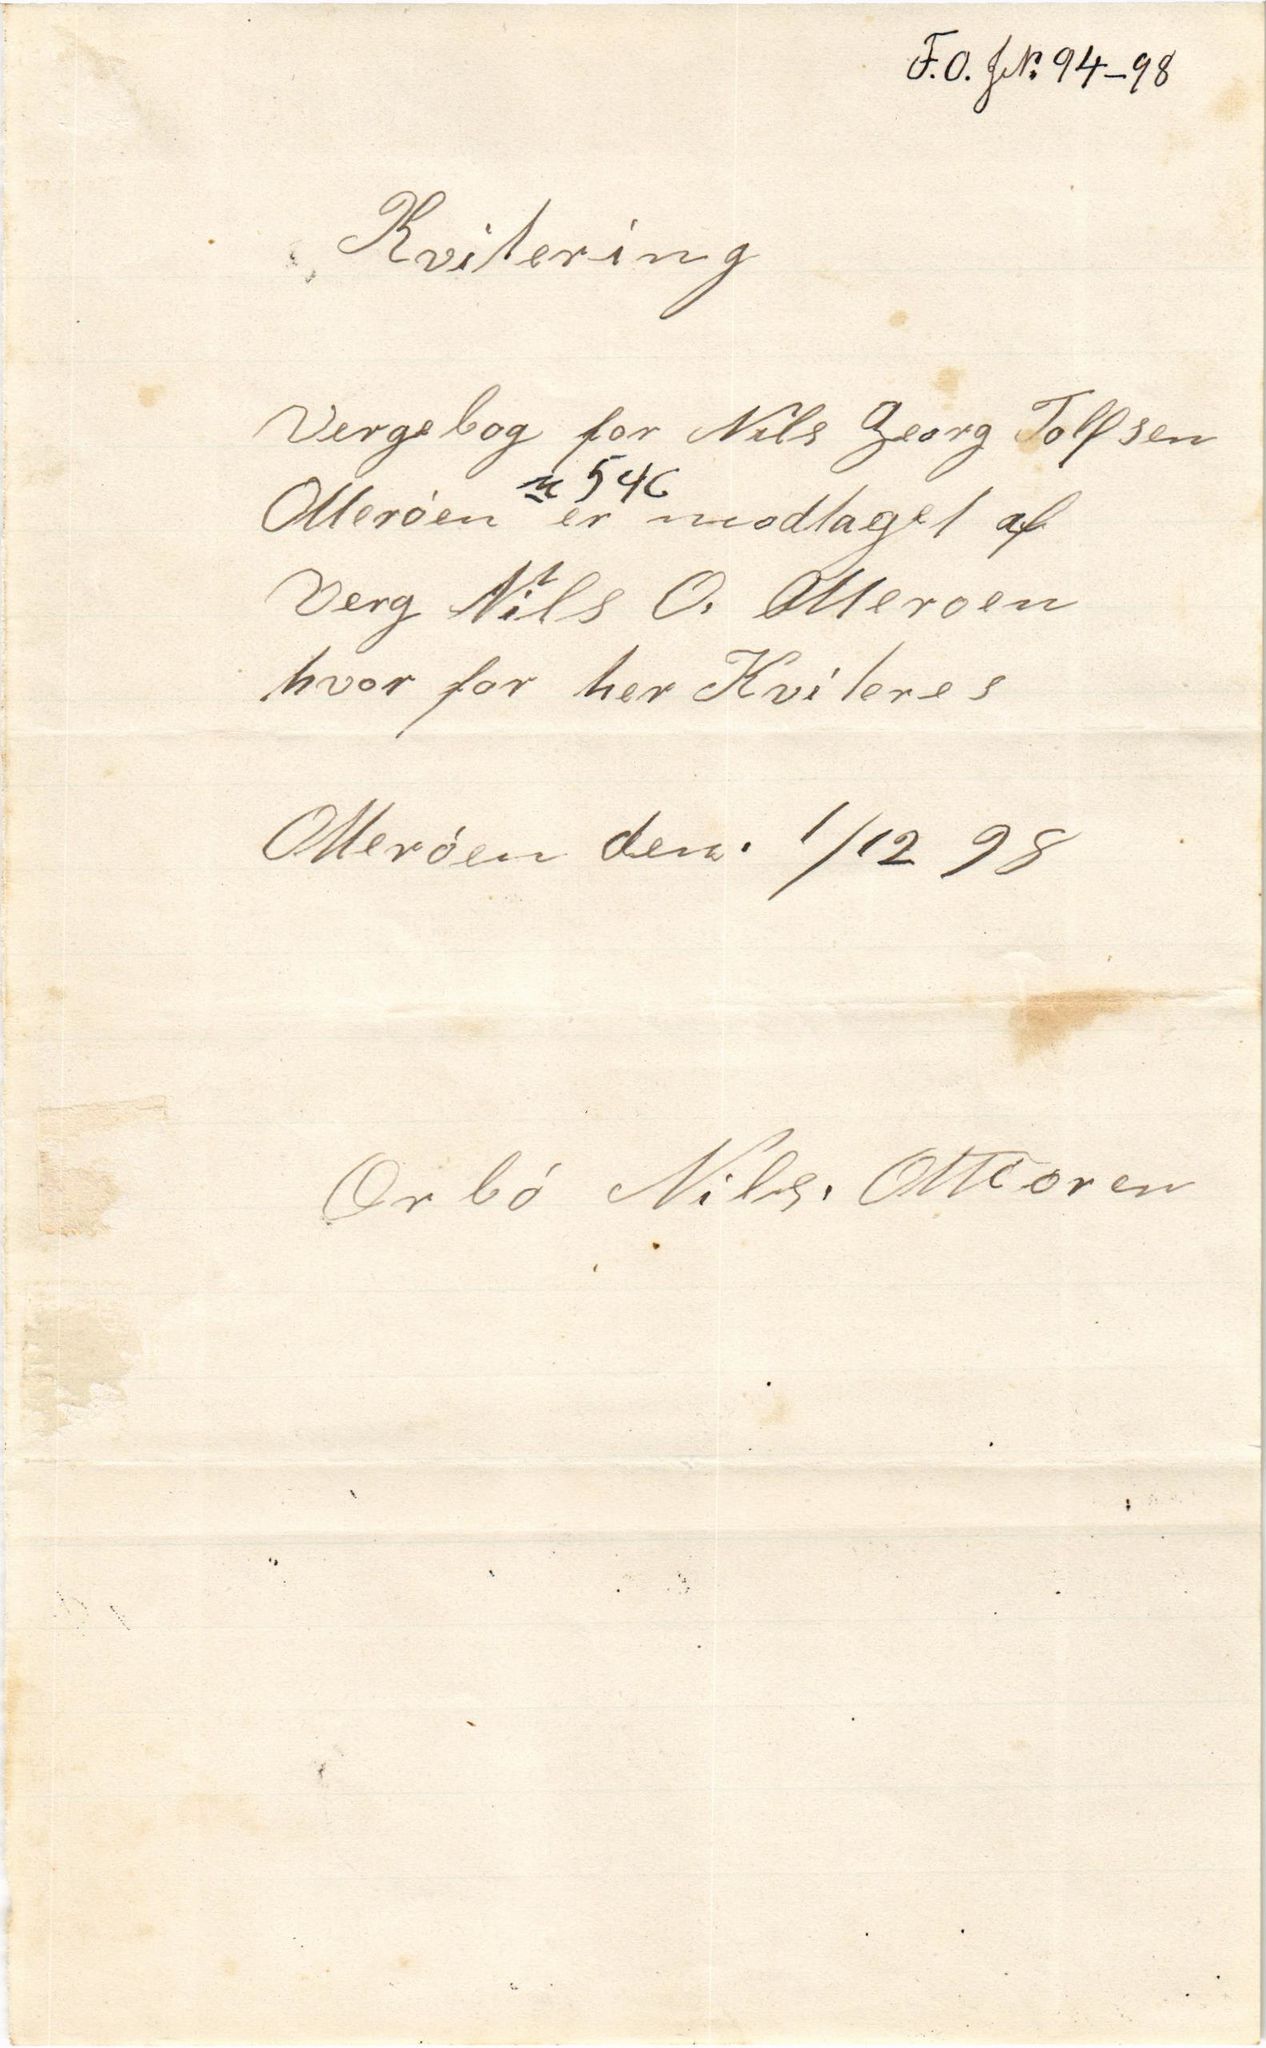 F.O. JN. 94-98
Kvitering
Vergebog for Nils Georg Tolfsen
n 546
Otterøen er modtaget af
Verg Nils O. Otteroen
hvor for her Kviteres
Otterøen den. 1/12 98
Ørbó Nils. Otteoren